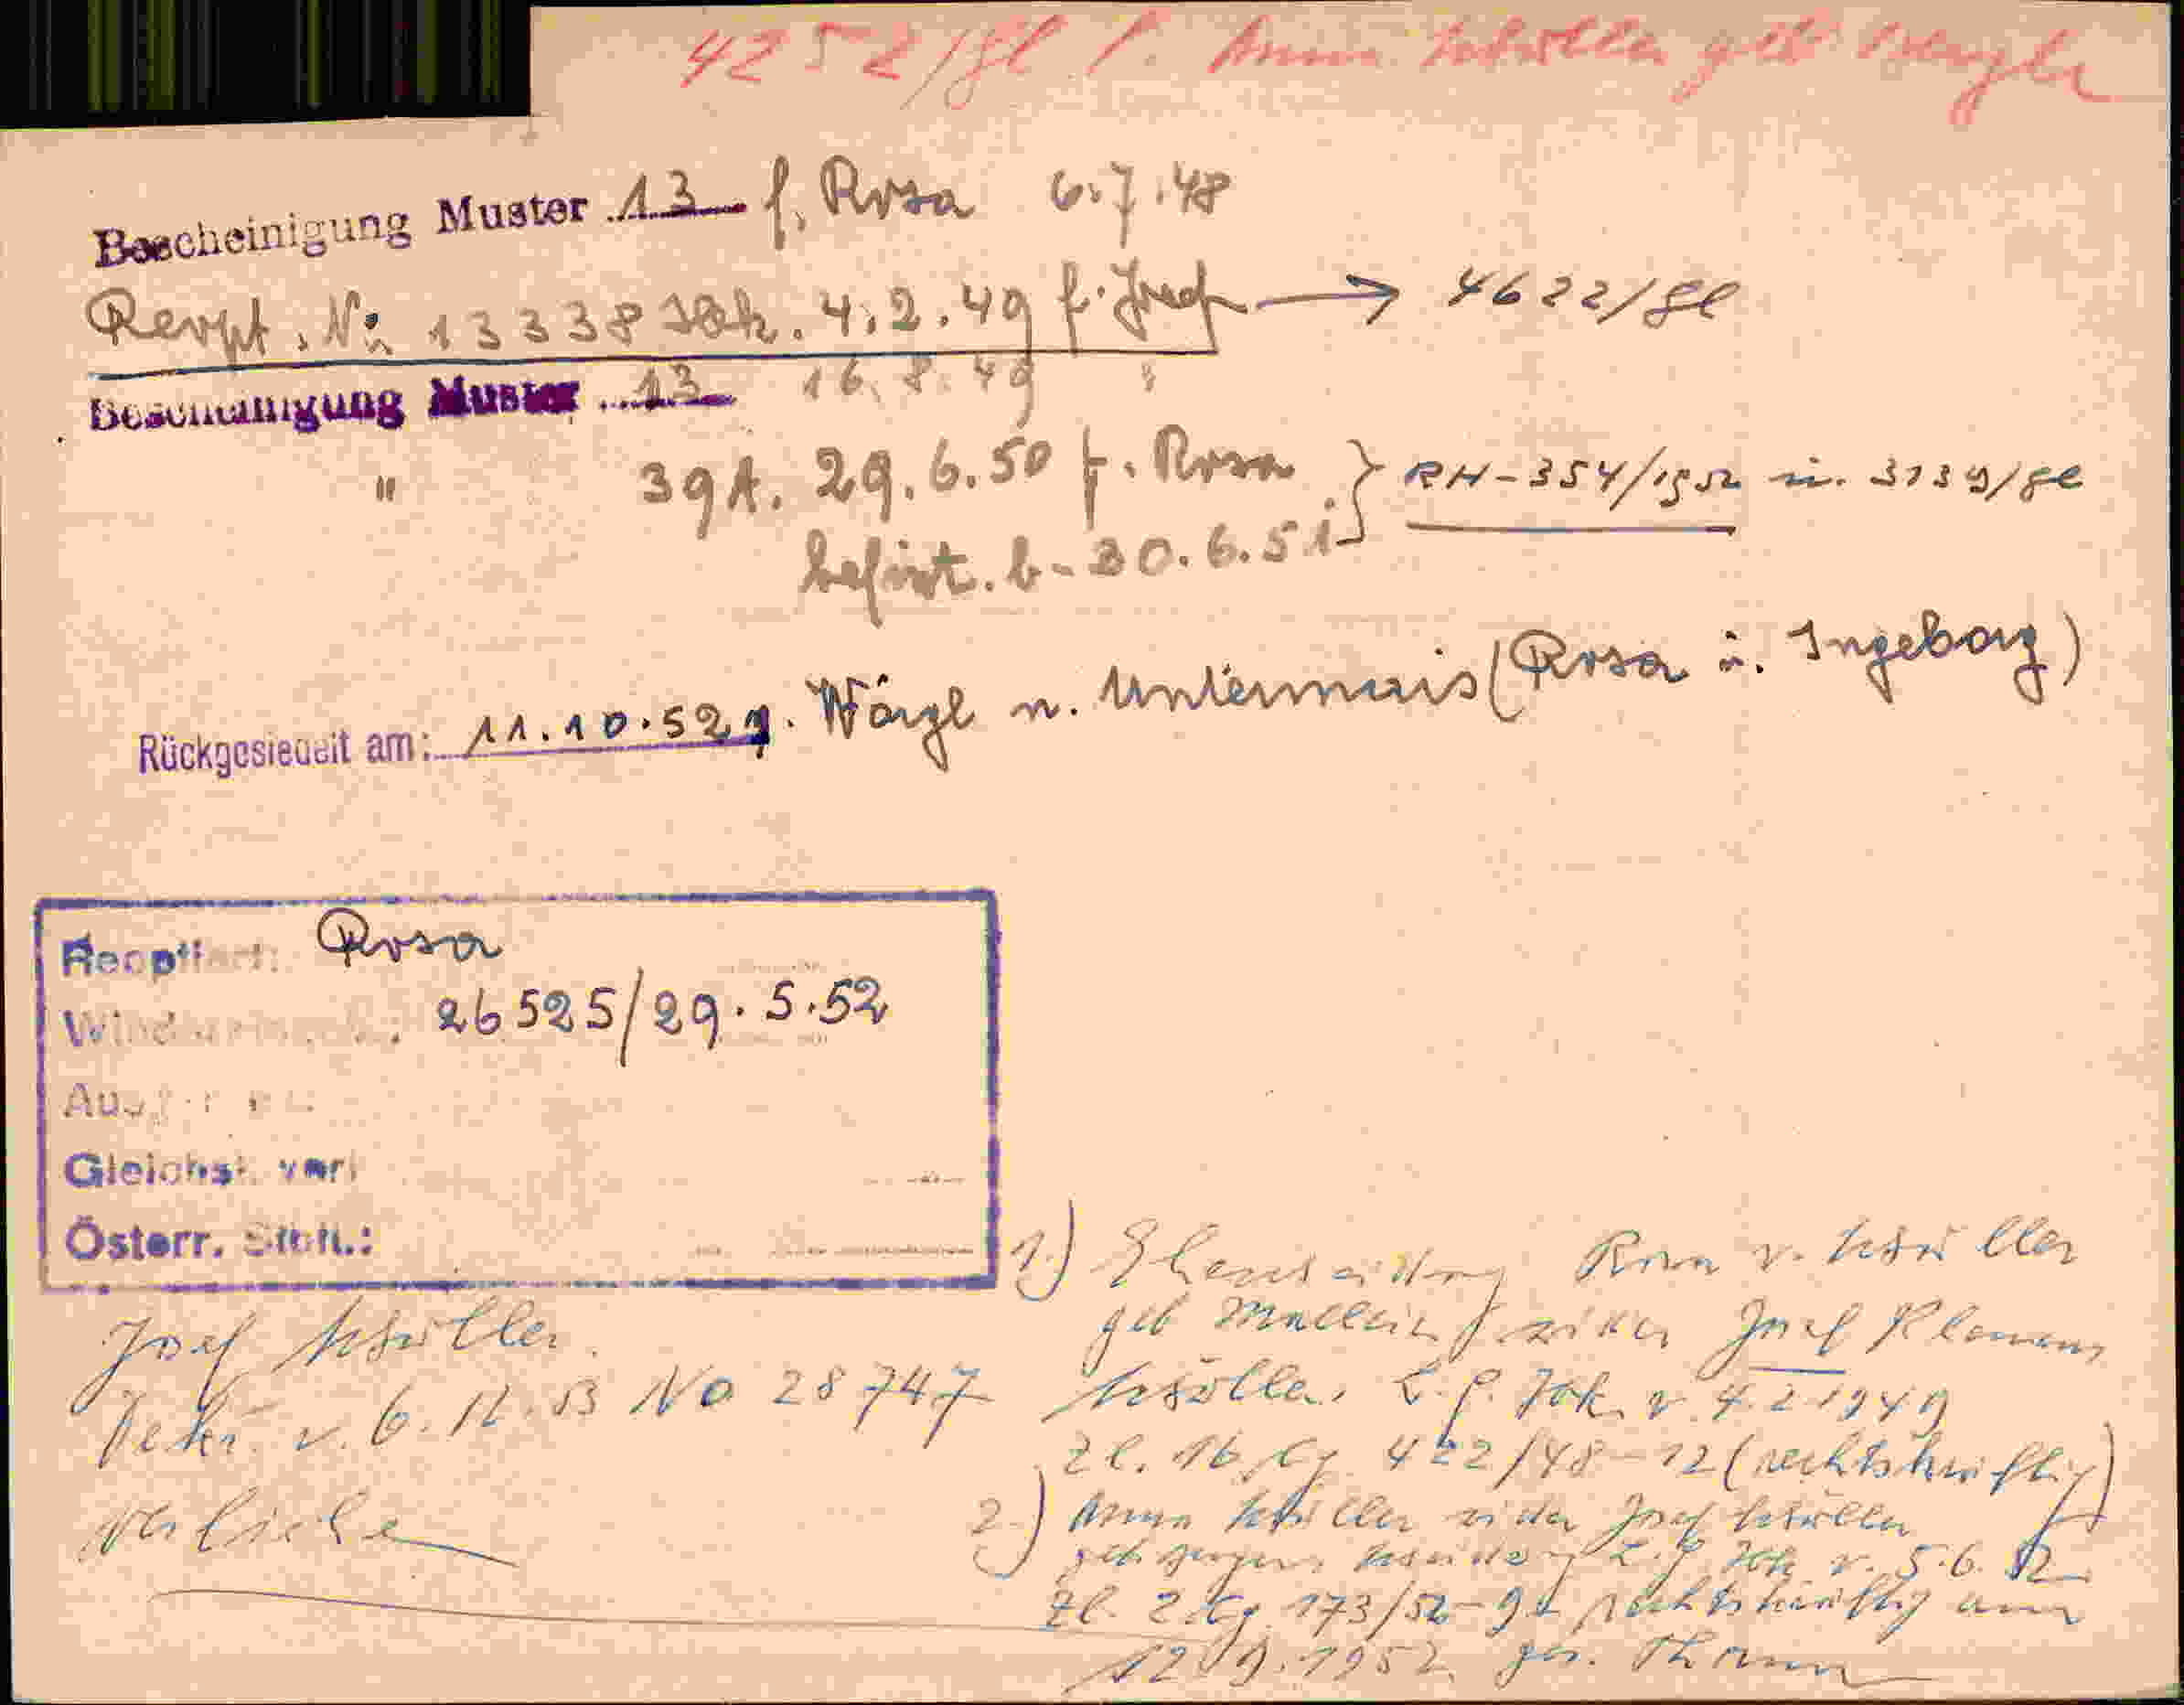 4252/gl f. Anna Schöller geb
Bescheinigung Muster 13 f. Rosa 6.7.48
Reopt. Nr. 13338 Ibk. 4.2.49 f. Josef → 4622/gl
Bescheinigung Muster 13 16.8.49 "
" 39A. 29.6.50 f. Rosa } RH-354/1952 u. 3139/gl
befrist. b. 30.6.51
Rückgesiedelt am: 11.10.52 g. Wörgl n. Untermais (Rosa u. Ingeborg)
Reoptiert: Rosa
26525/29.5.52
Gleichst. verl
Österr. Stb.:
1.) Ehescheidung Rosa v. Schöller
geb wider Josef Klemens
Schöller, L.G. Ibk v. 4.2.1949
Zl. 16 Cg 422/48-12 (rechtskräftig)
Josef Schöller
Dekr. v. 6.12.53 No 28747
verliehen
2.) Anna Schöller wider Josef Schöller
geb Scheidung L.G. Ibk v. 5.6.52
Zl. 2 Cg. 173/52-9 rechtskräftig am
12.9.1952 gez.